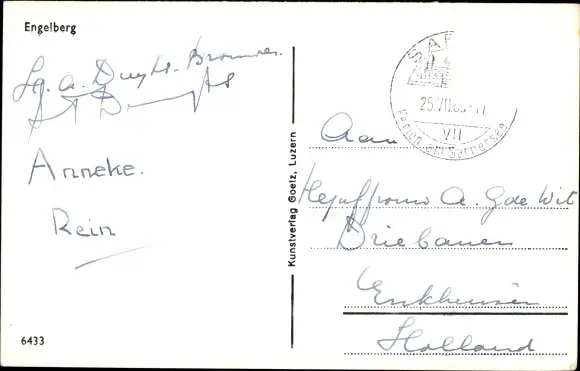 Engelberg
Anneke.
Rein
6433
Kunstverlag Goetz, Luzern
SAR
25.VII.
VII
Ferien am Sarnersee
Aan
Mejuffrouw A. G de Wit
Driebanen
Enkhuizen
Holland